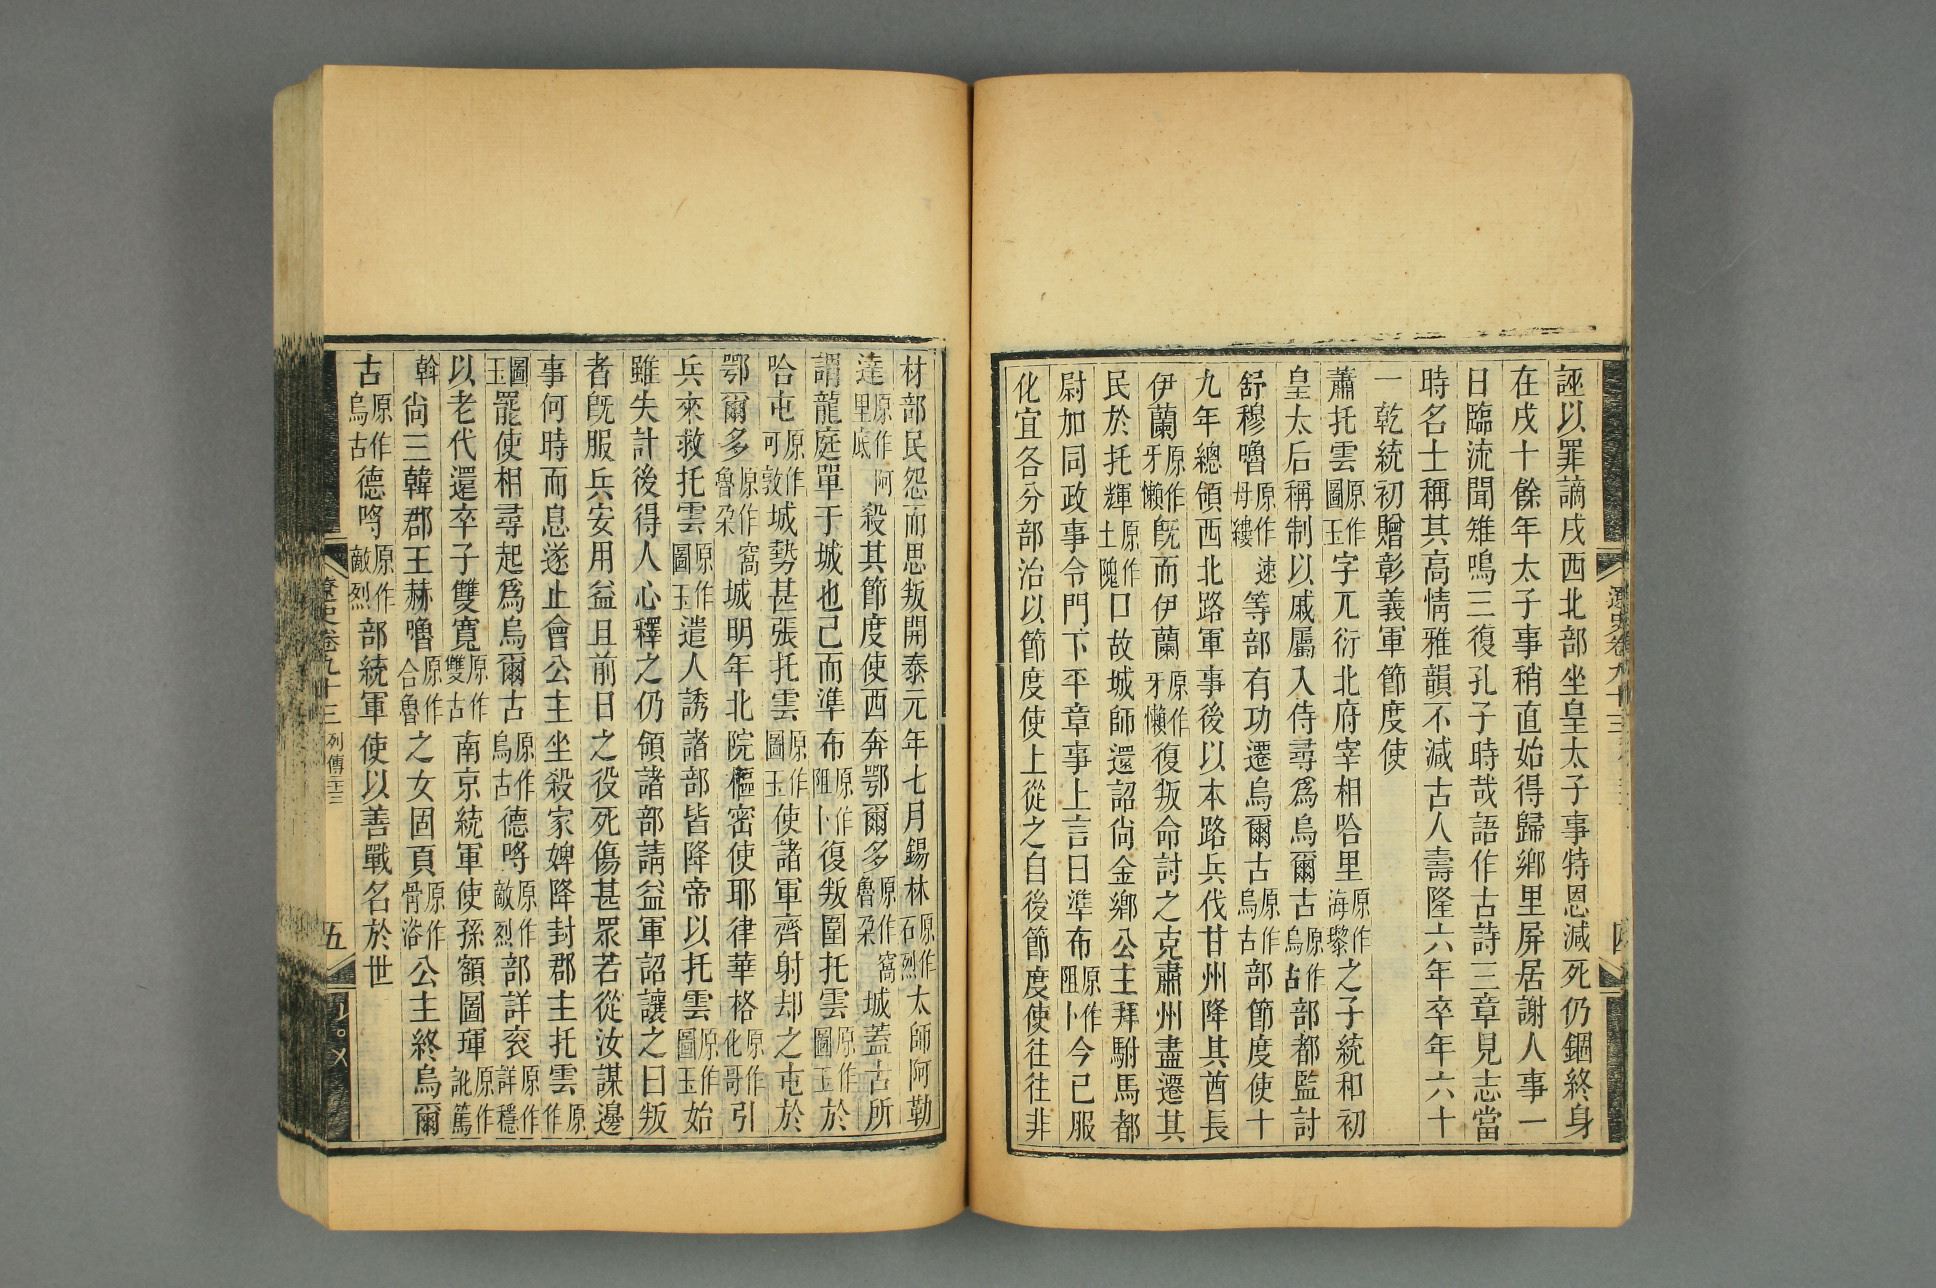 誣以罪謫戍西北部坐皇太子事特恩減死仍錮終身
在戍十餘年太子事稍直始得歸鄉里屏居謝人事一
日臨流聞雉鳴三復孔子時哉語作古詩三章見志當
時名士稱其高情雅韻不減古人壽隆六年卒年六十
一乾統初贈彰義軍節度使
蕭托雲原作圖玉字兀衍北府宰相哈里原作海瓈之子統和初
皇太后稱制以戚屬入侍尋爲烏爾古原作烏古部都監討
舒穆嚕原作速母縷等部有功遷烏爾古原作烏古部節度使十
九年總領西北路軍事後以本路兵伐甘州降其酋長
伊蘭原作牙懶旣而伊蘭原作牙懶復叛命討之克肅州盡遷其
民於托輝原作土隗口故城師還詔尚金鄉公主拜駙馬都
尉加同政事令門下平章事上言曰準布原作阻卜今已服
化宜各分部治以節度使上從之自後節度使往往非
材部民怨而思叛開泰元年七月錫林原作石烈太師阿勒
達原作阿里底殺其節度使西奔鄂爾多原作窩魯朶城蓋古所
謂龍庭單于城也已而準布原作阻卜復叛圍托雲原作圖玉於
哈屯原作可敦城勢甚張托雲原作圖玉使諸軍齊射却之屯於
鄂爾多原作窩魯朶城明年北院樞密使耶律華格原作化哥引
兵來救托雲原作圖玉遣人誘諸部皆降帝以托雲原作圖玉始
雖失計後得人心釋之仍領諸部請益軍詔讓之曰叛
者旣服兵安用益且前日之役死傷甚眾若從汝謀邊
事何時而息遂止會公主坐殺家婢降封郡主托雲原作
圖玉罷使相尋起爲烏爾古原作烏古德哷原作敵烈部詳衮原作詳穩
以老代還卒子雙寬原作雙古南京統軍使孫額圖琿原作訛篤
斡尚三韓郡王赫嚕原作合魯之女固頁原作骨浴公主終烏爾
古原作烏古德哷原作敵烈部統軍使以善戰名於世
遼史卷九十三 列傳二十三
五